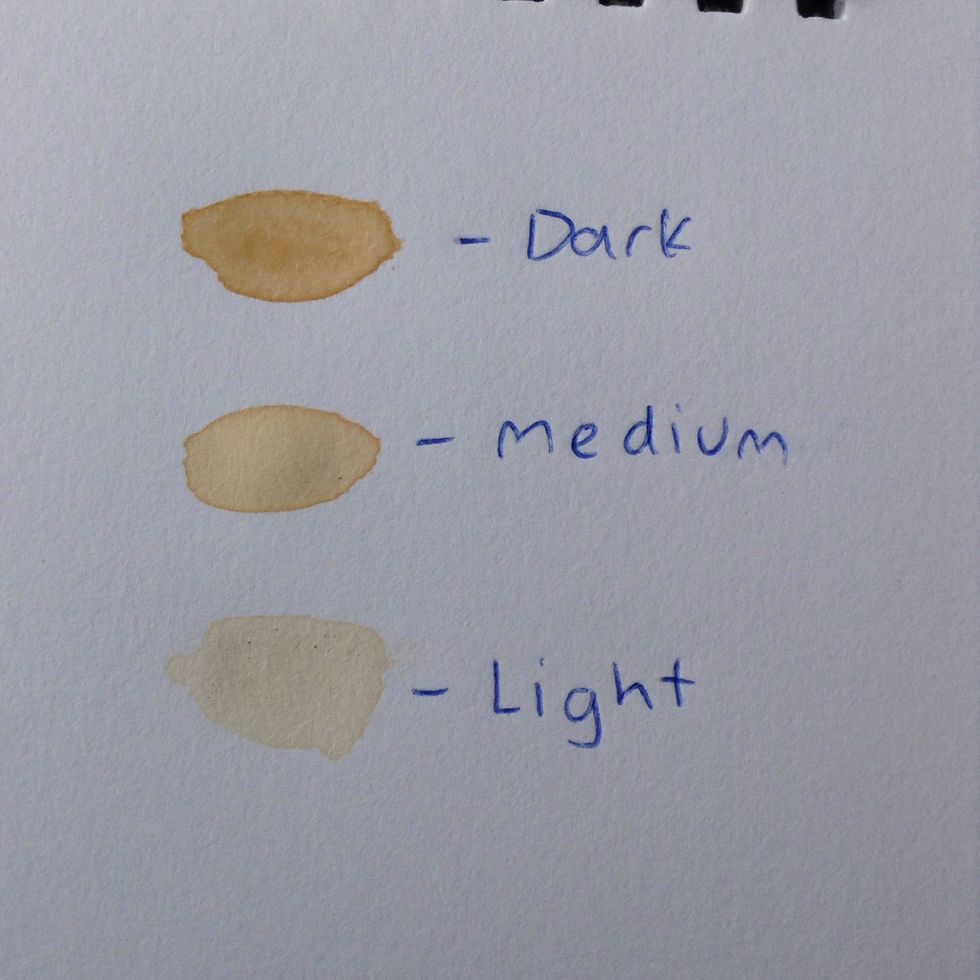 - Dark
- medium
- Light